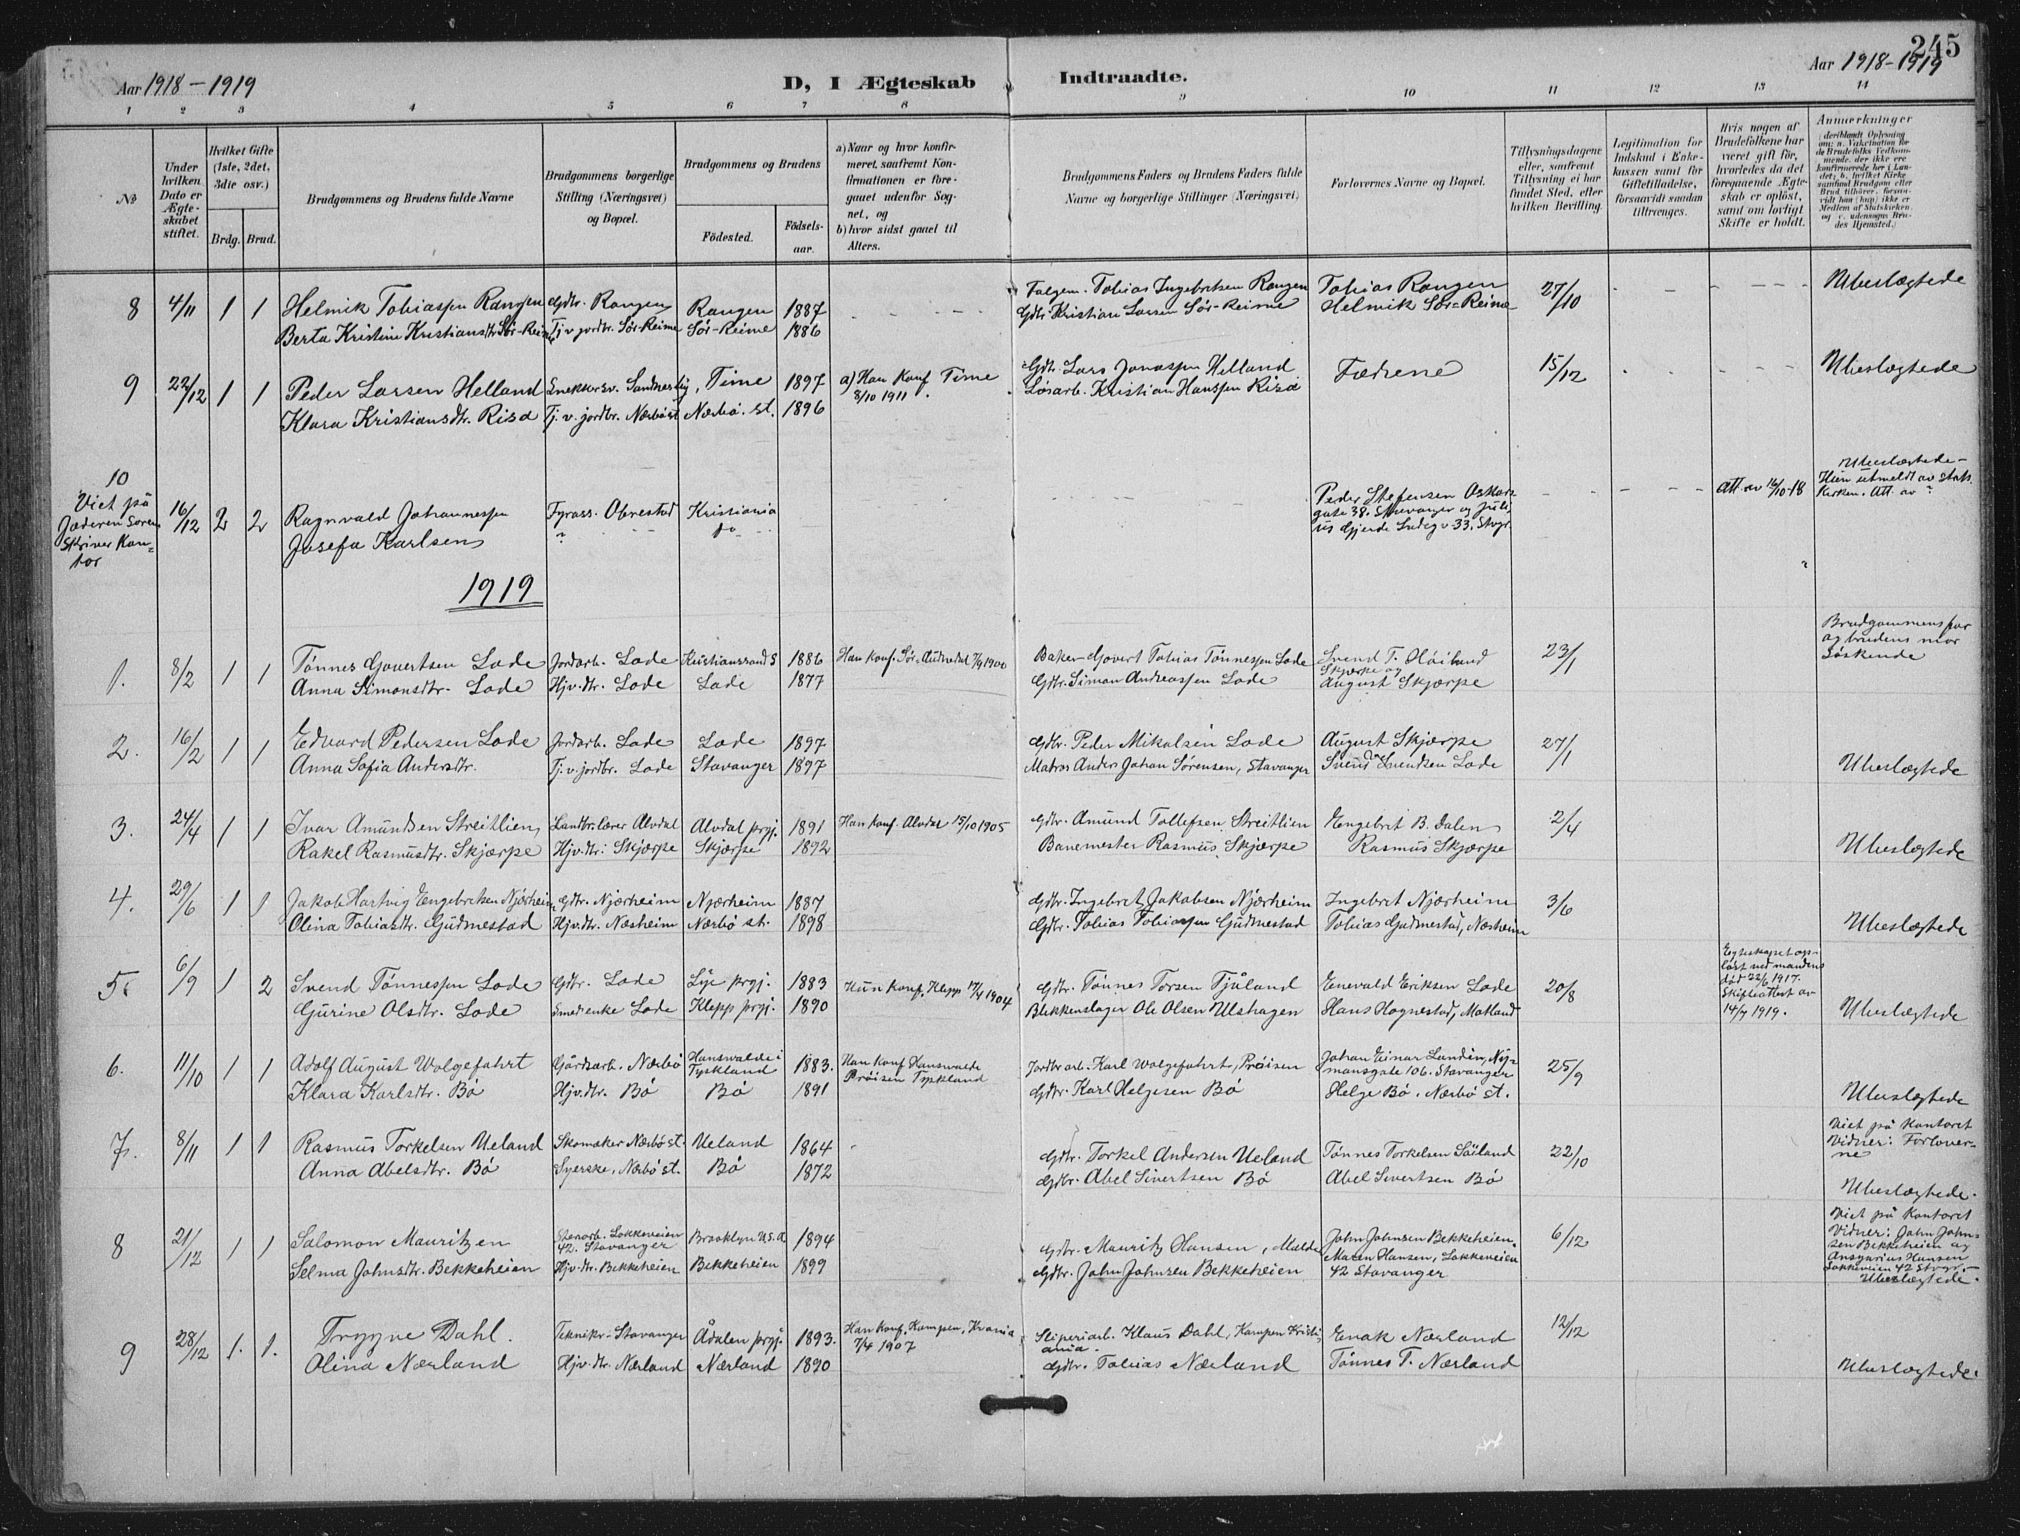 245
Aar 1918-1919
D, I Ægteskab Indtraadte.
Aar 1918-1919
1 2 3 4 5 6 7 8 9 10 11 12 13 14
No
Under hvilken Dato er Ægteskabet stiftet.
Hvilket Gifte (1ste, 2det, 3die osv.)
Brdg. Brud.
Brudgommens og Brudens fulde Navne
Brudgommens borgerlige Stilling (Næringsvei) og Bopæl.
Brudgommens og Brudens
Födested. Födselsaar.
a) Naar og hvor konfirmeret, saafremt Konfirmationen er foregaaet udenfor Sognet, og
b) hvor sidst gaaet til Alters.
Brudgommens Faders og Brudens Faders fulde Navne og borgerlige Stillinger (Næringsvei)
Forlovernes Navne og Bopæl.
Tillysningsdagene eller, saafremt Tillysning ei har fundet Sted, efter hvilken Bevilling.
Legitimation for Indskud i Enkekassen samt for Giftetilladelse, forsaavidt saadan tiltrænges.
Hvis nogen af Brudefolkene har været gift för, hvorledes da det foregaaende Ægteskab er oplöst, samt om lovligt Skifte er holdt.
Anmerkninger
8 4/11 1 1 Helmik Tobiassen Rangen Gdtr. Rangen Rangen 1887 Tobias Ingebretsen Rangen Tobias Rangen 27/10 Ubeslægtede
Berta Kristine Kristiansdtr Sör-Reime Tj. v. jordbr. Sör-Reime Sör-Reime 1886 Gdtr Kristian Larsen Sör-Reime Helmik Sör-Reime
9 22/12 1 1 Peder Larsen Helland Snekkersv. Sandnes Time 1897 a) Han konf. Time 8/10 1911 Gdtr. Lars Jonassen Helland Fædrene 15/12 Ubeslægtede
Klara Kristiansdtr. Risa Tj. v. jordbr. Nærbö st. Nærbö st. 1896 Lösarb. Kristian Hanssen Risa
10 Viet på Jæderen Sorenskriver Kontor 16/12 2 2 Ragnvald Johannessen Fyrass. Obrestad Kristiania Peder Stefensen Oskarsgate 38. Stavanger og Julius Gjerde Ladeg v. 33. Stvgr. Att. av 16/10-18 Ubeslægtede - Hun utmeldt av Statskirken. Att. av ?
Josefa Karlsen ? do
1919
1. 8/2 1 1 Tönnes Govertsen Lode Jordarb. Lode Kristianssand S 1886 Han konf. Sör-Audnedal 7/9 1900 Baker Govert Tobias Tönnessen Lode Svend T. Höiland Skjærpe og 23/1 Brudgommens far og brudens mor söskende
Anna Simonsdtr. Lode Hjv. dtr. Lode Lode 1877 Gdtr. Simon Andreassen Lode August Skjærpe
2. 16/2 1 1 Edvard Pedersen Lode Jordarb. Lode Lode 1897 Gdbr. Peder Mikalsen Lode August Skjærpe 27/1 Ubeslægtede
Anna Sofia Andersdtr. Tj. v. jordbr. Lode Stavanger 1897 Matros Anders Johan Sörensen, Stavanger Svend Svendsen Lode
3. 24/4 1 1 Ivar Amundsen Streitlien Landbr.lærer Alvdal Alvdal prgj. 1891 Han konf. Alvdal 15/10 1905 Gdtr. Amund Tollefsen Streitlien Engebret B. Dalen 2/4 Ubeslægtede
Rakel Rasmusdtr. Skjærpe Hjv. dtr. Skjærpe Skjærpe 1892 Banemester Rasmus Skjærpe Rasmus Skjærpe
4. 29/6 1 1 Jakob Hartvig Engebretsen Njærheim Gdtr. Njærheim Njærheim 1887 Gdtr. Ingebret Jakobsen Njærheim Ingebret Njærheim 3/6 Ubeslægtede
Olina Tobiasdtr. Gudmestad Hjv. dtr. Næsheim Nærbö st. 1898 Gdbr. Tobias Tobiassen Gudmestad Tobias Gudmestad, Næsheim
5. 6/9 1 2 Svend Tönnessen Lode Gdtr. Lode Lye prgj. 1883 Hun konf. Klepp 17/4 1904 Gdtr. Tönnes Torsen Tjåland Enevald Eriksen Lode 20/8 Egteskapet oplöst ved mandens död 22/6 1917. Skifteattest av 14/7 1919. Ubeslægtede
Gurine Olsdtr. Lode Smedenke Lode Klepp prgj. 1890 Blikkenslager Ole Olsen Ulshagen Hans Hognestad, Motland
6. 11/10 1 1 Adolf August Wolgefahrt Gårdsarb. Nærbö Hanswalde i Tyskland 1883. Han konf. Hanswalde Pröisen Tyskland Jordbr arb. Karl Wolgefahrt, Pröisen Johan Einar Lundén, Nymansgate 106. Stavanger 25/9 Ubeslægtede
Klara Karlsdtr. Bö Hjv. dtr. Bö Bö 1891 Gdtr. Karl Helgesen Bö Helge Bö, Nærbö st.
7. 8/11 1 1 Rasmus Torkelsen Ueland Skomaker Nærbö st. Ueland 1864 Gdtr. Torkel Andersen Ueland Tönnes Torkelsen Söiland 22/10 Viet på kontoret Vidner: Forloverne Ubeslægtede.
Anna Abelsdtr. Bö Syerske, Nærbö st. Bö 1872 Gdbr. Abel Sivertsen Bö Abel Sivertsen Bö
8 21/12 1 1 Salomon Mauritzen Stenarb. Lokkeveien 42. Stavanger Brooklyn U.S.A 1894 Gdbr. Mauritz Hansen, Melde John Johnsen Bekkeheien. 6/12 Viet på kontoret Vidner: John Johnsen Bekkeheien og Ansgarius Hansen Lokkeveien 42 Stvgr. - Ubeslægtede.
Selma Johnsdtr. Bekkeheien Hjv. dtr. Bekkeheien Bekkeheien 1899 Gdbr. John Johnsen Bekkeheien Maren Hansen, Lokkeveien 42 Stavanger
9 28/12 1. 1. Trygve Dahl. Tekniker - Stavanger Ådalen prgj. 1893. Han konf. Kampen, Kr.ania 7/4 1907 Sliperiarb. Klaus Dahl, Kampen Kristiania. Enok Nærland 12/12 Ubeslægtede.
Olina Nærland Hjv. dtr. Nærland Nærland 1890 Gdbr. Tobias Nærland Tönnes T. Nærland